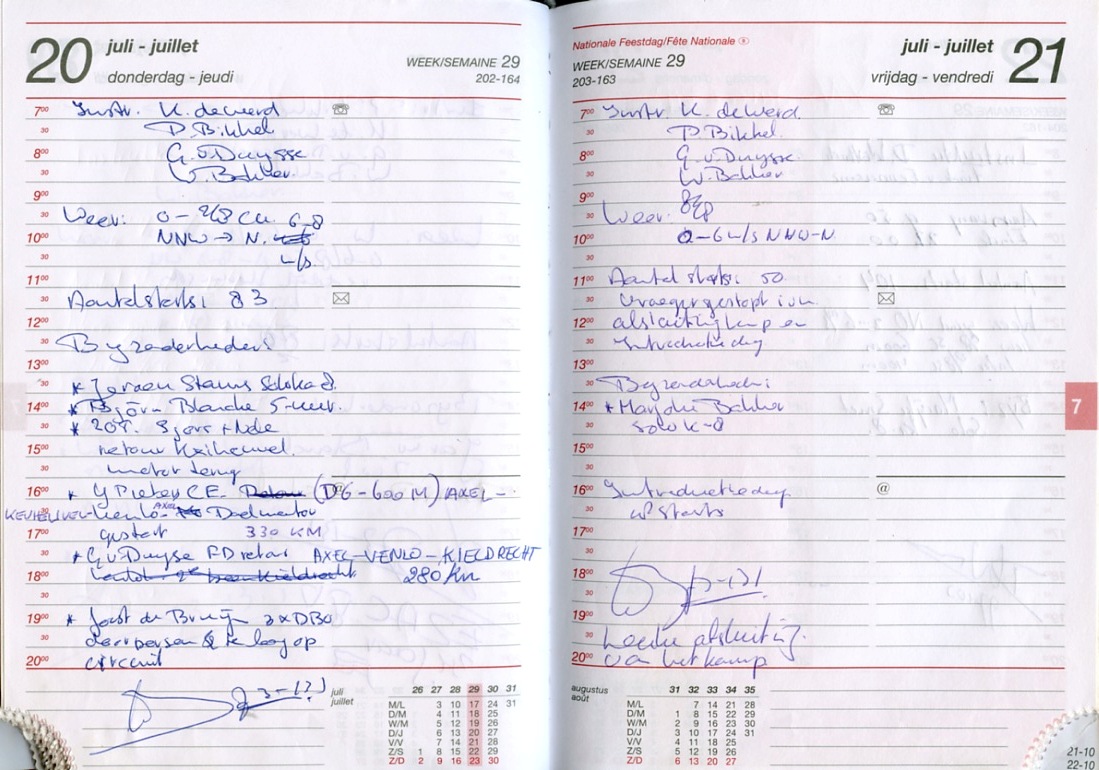 20 juli - juillet
donderdag - jeudi
WEEK/SEMAINE 29
202-164
7⁰⁰ Instr. K. deWerd
30 P. Bikkel
8⁰⁰ G. v. Duysse
30 W. Bakker
9⁰⁰
30 Weer: 0 - 2/8 Cu. 6-8
10⁰⁰ NNW → N.
30 m/s
11⁰⁰
30 Aantal starts: 83
12⁰⁰
30 Byzonderheden
13⁰⁰
30 * Jeroen Stams Solo ka 8.
14⁰⁰ * Bjorn Blanche 5-uur.
30 * 207. Bjorn + Ade
15⁰⁰ retour Keiheuvel.
30 motor terug
16⁰⁰ * Y Pieters C.E. (DG-600 M) AXEL-
30 KEIHEUVEL-Venlo-AXEL
17⁰⁰ gestart 330 KM
30 * G. v Duysse FD retour AXEL-VENLO-KIELDRECHT
18⁰⁰ 280 Km
30
19⁰⁰ * Joost de Bruijn 3xDBO
30 doorpersen & te laag op
20⁰⁰ circuit
juli
juillet
26 27 28 29 30 31
M/L 3 10 17 24 31
D/M 4 11 18 25
W/M 5 12 19 26
D/J 6 13 20 27
V/V 7 14 21 28
Z/S 1 8 15 22 29
Z/D 2 9 16 23 30
Nationale Feestdag/Fête Nationale Ⓑ
WEEK/SEMAINE 29
203-163
juli - juillet 21
vrijdag - vendredi
7⁰⁰ Instr. K. deWerd.
30 P. Bikkel.
8⁰⁰ G. v. Duysse.
30 W. Bakker
9⁰⁰
30 Weer. 8/8
10⁰⁰ 0-6 m/s NNW-N.
30
11⁰⁰ Aantal starts: 50
30 Vroeger gestopt i.v.m.
12⁰⁰ afsluiting kamp en
30 Introductiedag
13⁰⁰
30 Byzonderheden:
14⁰⁰ * Marjolie Bakker
30 Solo K-8
15⁰⁰
30
16⁰⁰ Introductiedag @
30 starts
17⁰⁰
30
18⁰⁰
30
19⁰⁰
30 Leuke afsluiting.
20⁰⁰ van het kamp
augustus
août
31 32 33 34 35
M/L 7 14 21 28
D/M 1 8 15 22 29
W/M 2 9 16 23 30
D/J 3 10 17 24 31
V/V 4 11 18 25
Z/S 5 12 19 26
Z/D 6 13 20 27
7
21-10
22-10